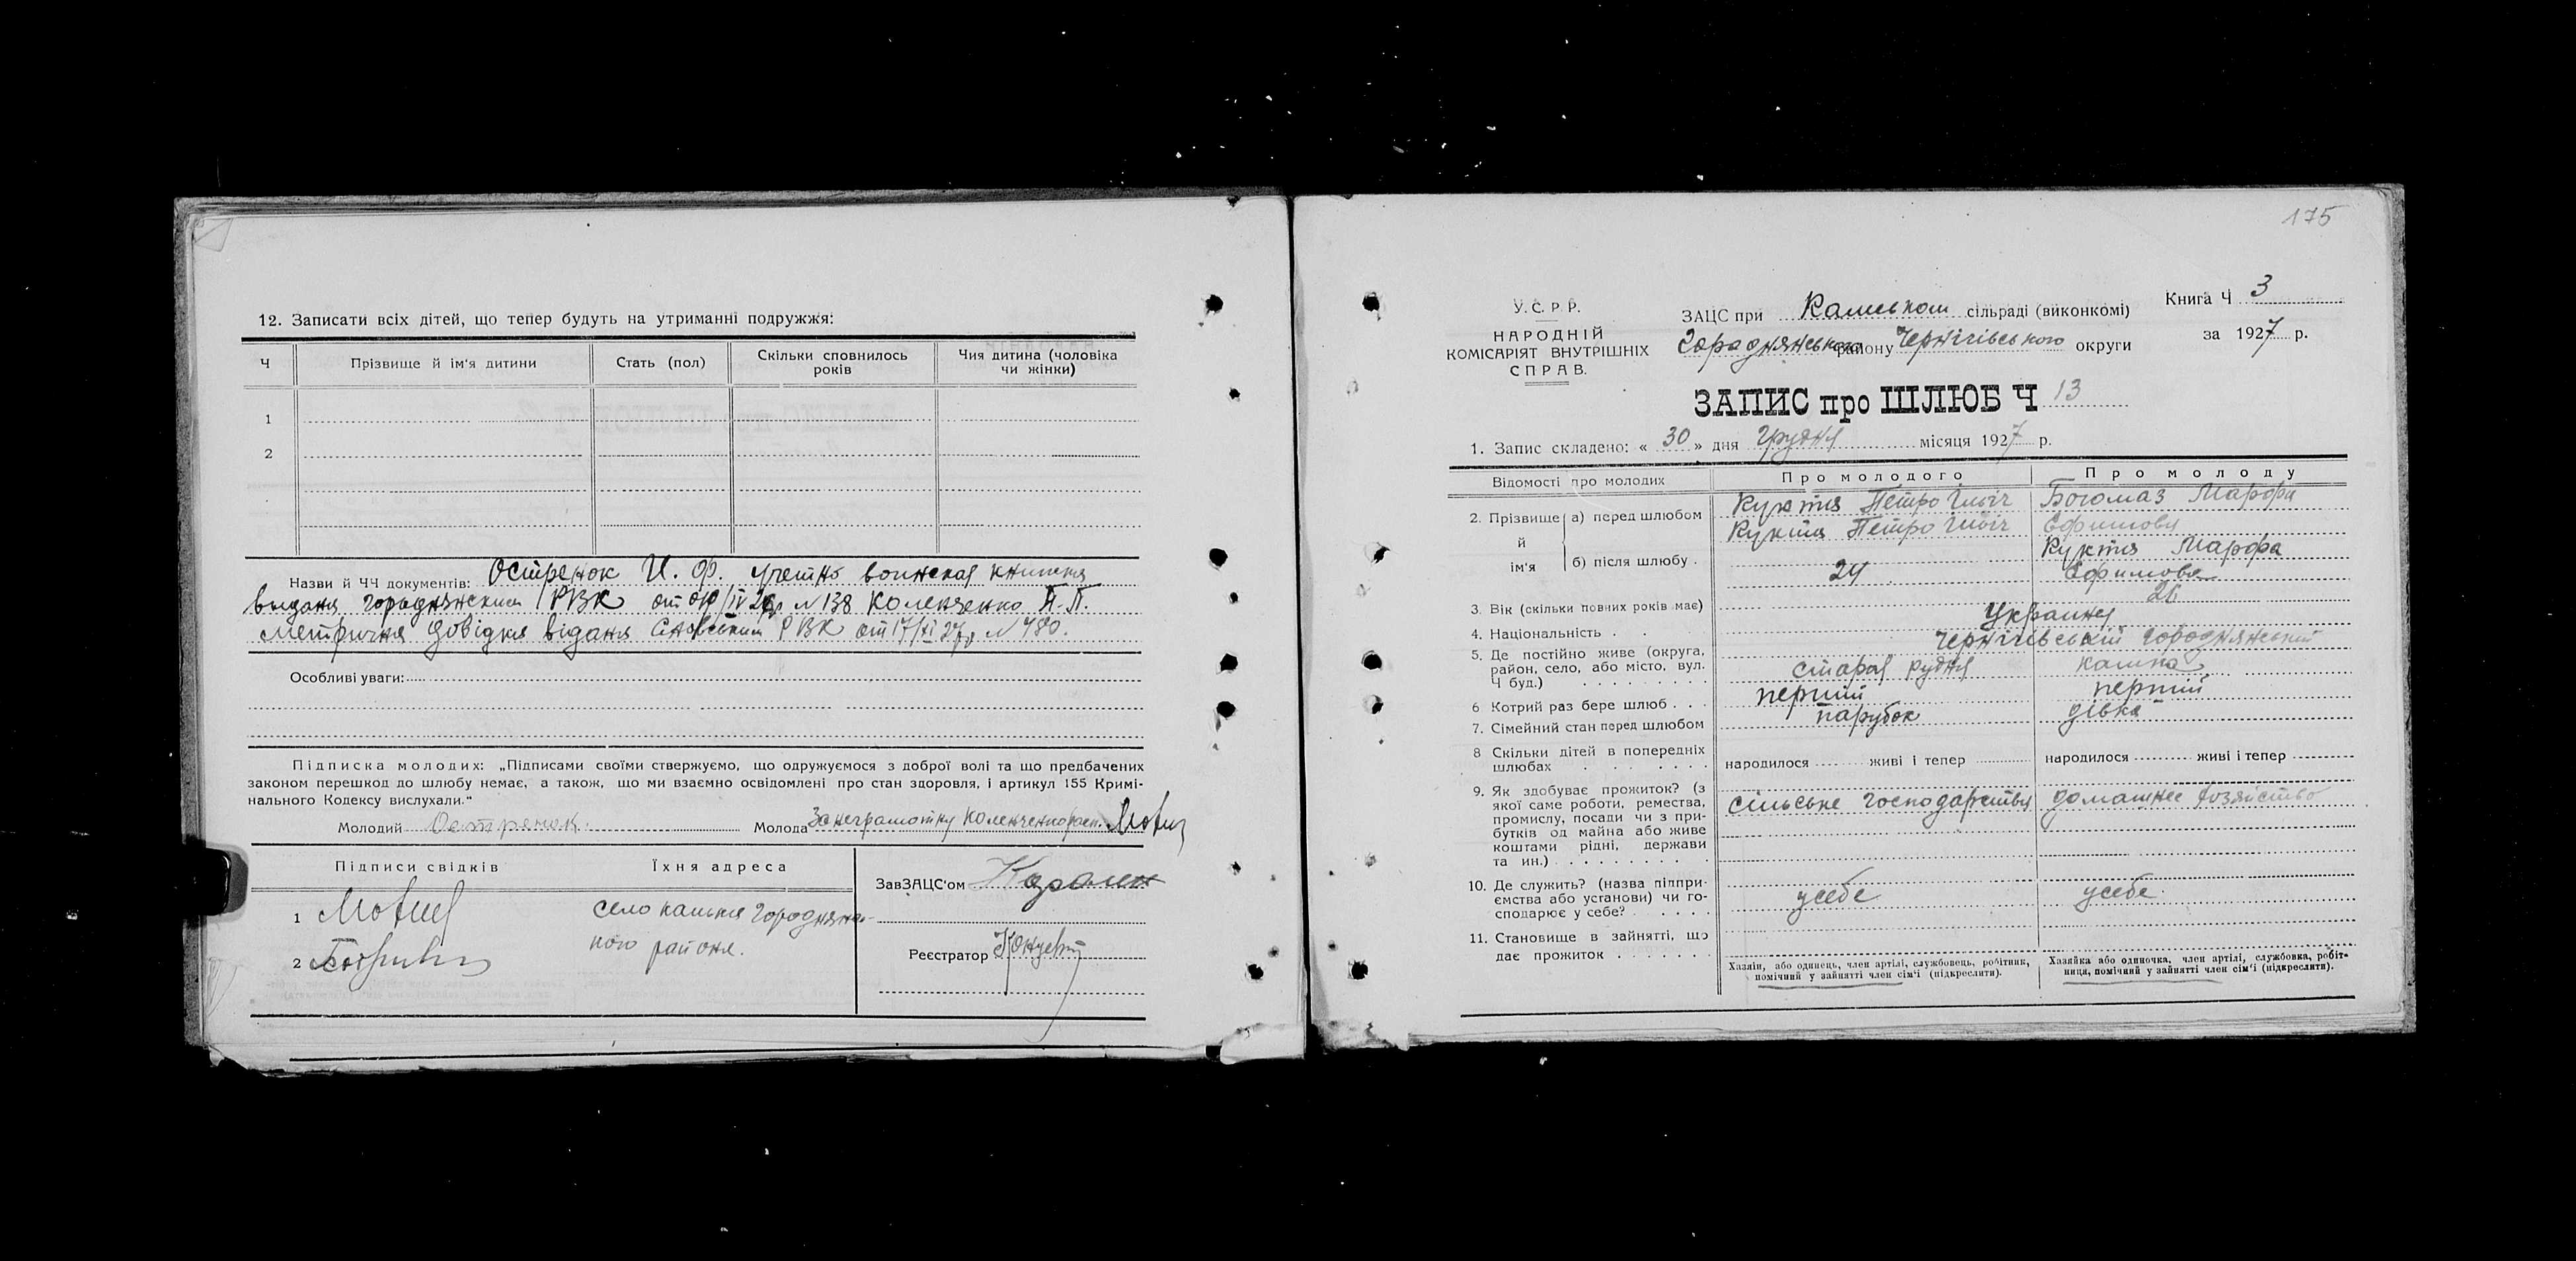 12. Записати всіх дітей, що тепер будуть на утриманні подружжя:
Ч Прізвище й ім'я дитини Стать (пол) Скільки сповнилось років Чия дитина (чоловіка чи жінки)
1
2
Назви й ЧЧ документів: Остренок И. Ф. учетно воинская книжка
выдана РВК от N 138 П.
метрична довідка відана РВК от 17/XI 27 р N 780.
Особливі уваги:
Підписка молодих: „Підписами своїми стверджуємо, що одружуємося з доброї волі та що предбачених
законом перешкод до шлюбу немає, а також, що ми взаємно освідомлені про стан здоровля, і артикул 155 Кримі-
нального Кодексу вислухали."
Молодий Остренок. Молода За неграмотну
Підписи свідків Їхня адреса
ЗавЗАЦС'ом
1 село
ного района.
2
Реєстратор
175
У. С. Р. Р.
НАРОДНІЙ
КОМІСАРІЯТ ВНУТРІШНІХ
СПРАВ.
ЗАЦС при сільраді (виконкомі)
Городнянського району Чернігівського округи
Книга Ч 3
за 1927 р.
ЗАПИС про ШЛЮБ Ч 13
1. Запис складено: « 30 » дня грудня місяця 1927 р.
Відомості про молодих Про молодого Про молоду
2. Прізвище й ім'я
а) перед шлюбом Кукта Петро Ілліч Богомаз Марфа
Кукта Петро Ілліч Ефимовна
б) після шлюбу . Кукта Марфа
24 Ефимовна
3. Вік (скільки повних років має) 26
4. Національність . . Украинці
5. Де постійно живе (округа, район, село, або місто, вул. Ч буд.) Чернігівській Городнянський
старая рудня
6 Котрий раз бере шлюб . . . перший перший
7. Сімейний стан перед шлюбом парубок дівка
8 Скільки дітей в попередніх шлюбах народилося живі і тепер народилося живі і тепер
9. Як здобуває прожиток? (з
якої саме роботи, ремества,
промислу, посади чи з при-
бутків од майна або живе
коштами рідні, держави
та ин.)
сільське господарства домашнее хозяйство
10. Де служить? (назва підпри-
ємства або установи) чи го-
сподарює у себе?
усебе усебе.
11. Становище в зайнятті, що
дає прожиток
Хазяїн, або одинець, член артілі, службовець, робітник,
помічний у зайнятті член сім'ї (підкреслити).
Хазяйка або одиночка, член артілі, службовка, робіт-
ниця, помічний у зайнятті член сім'ї (підкреслити).